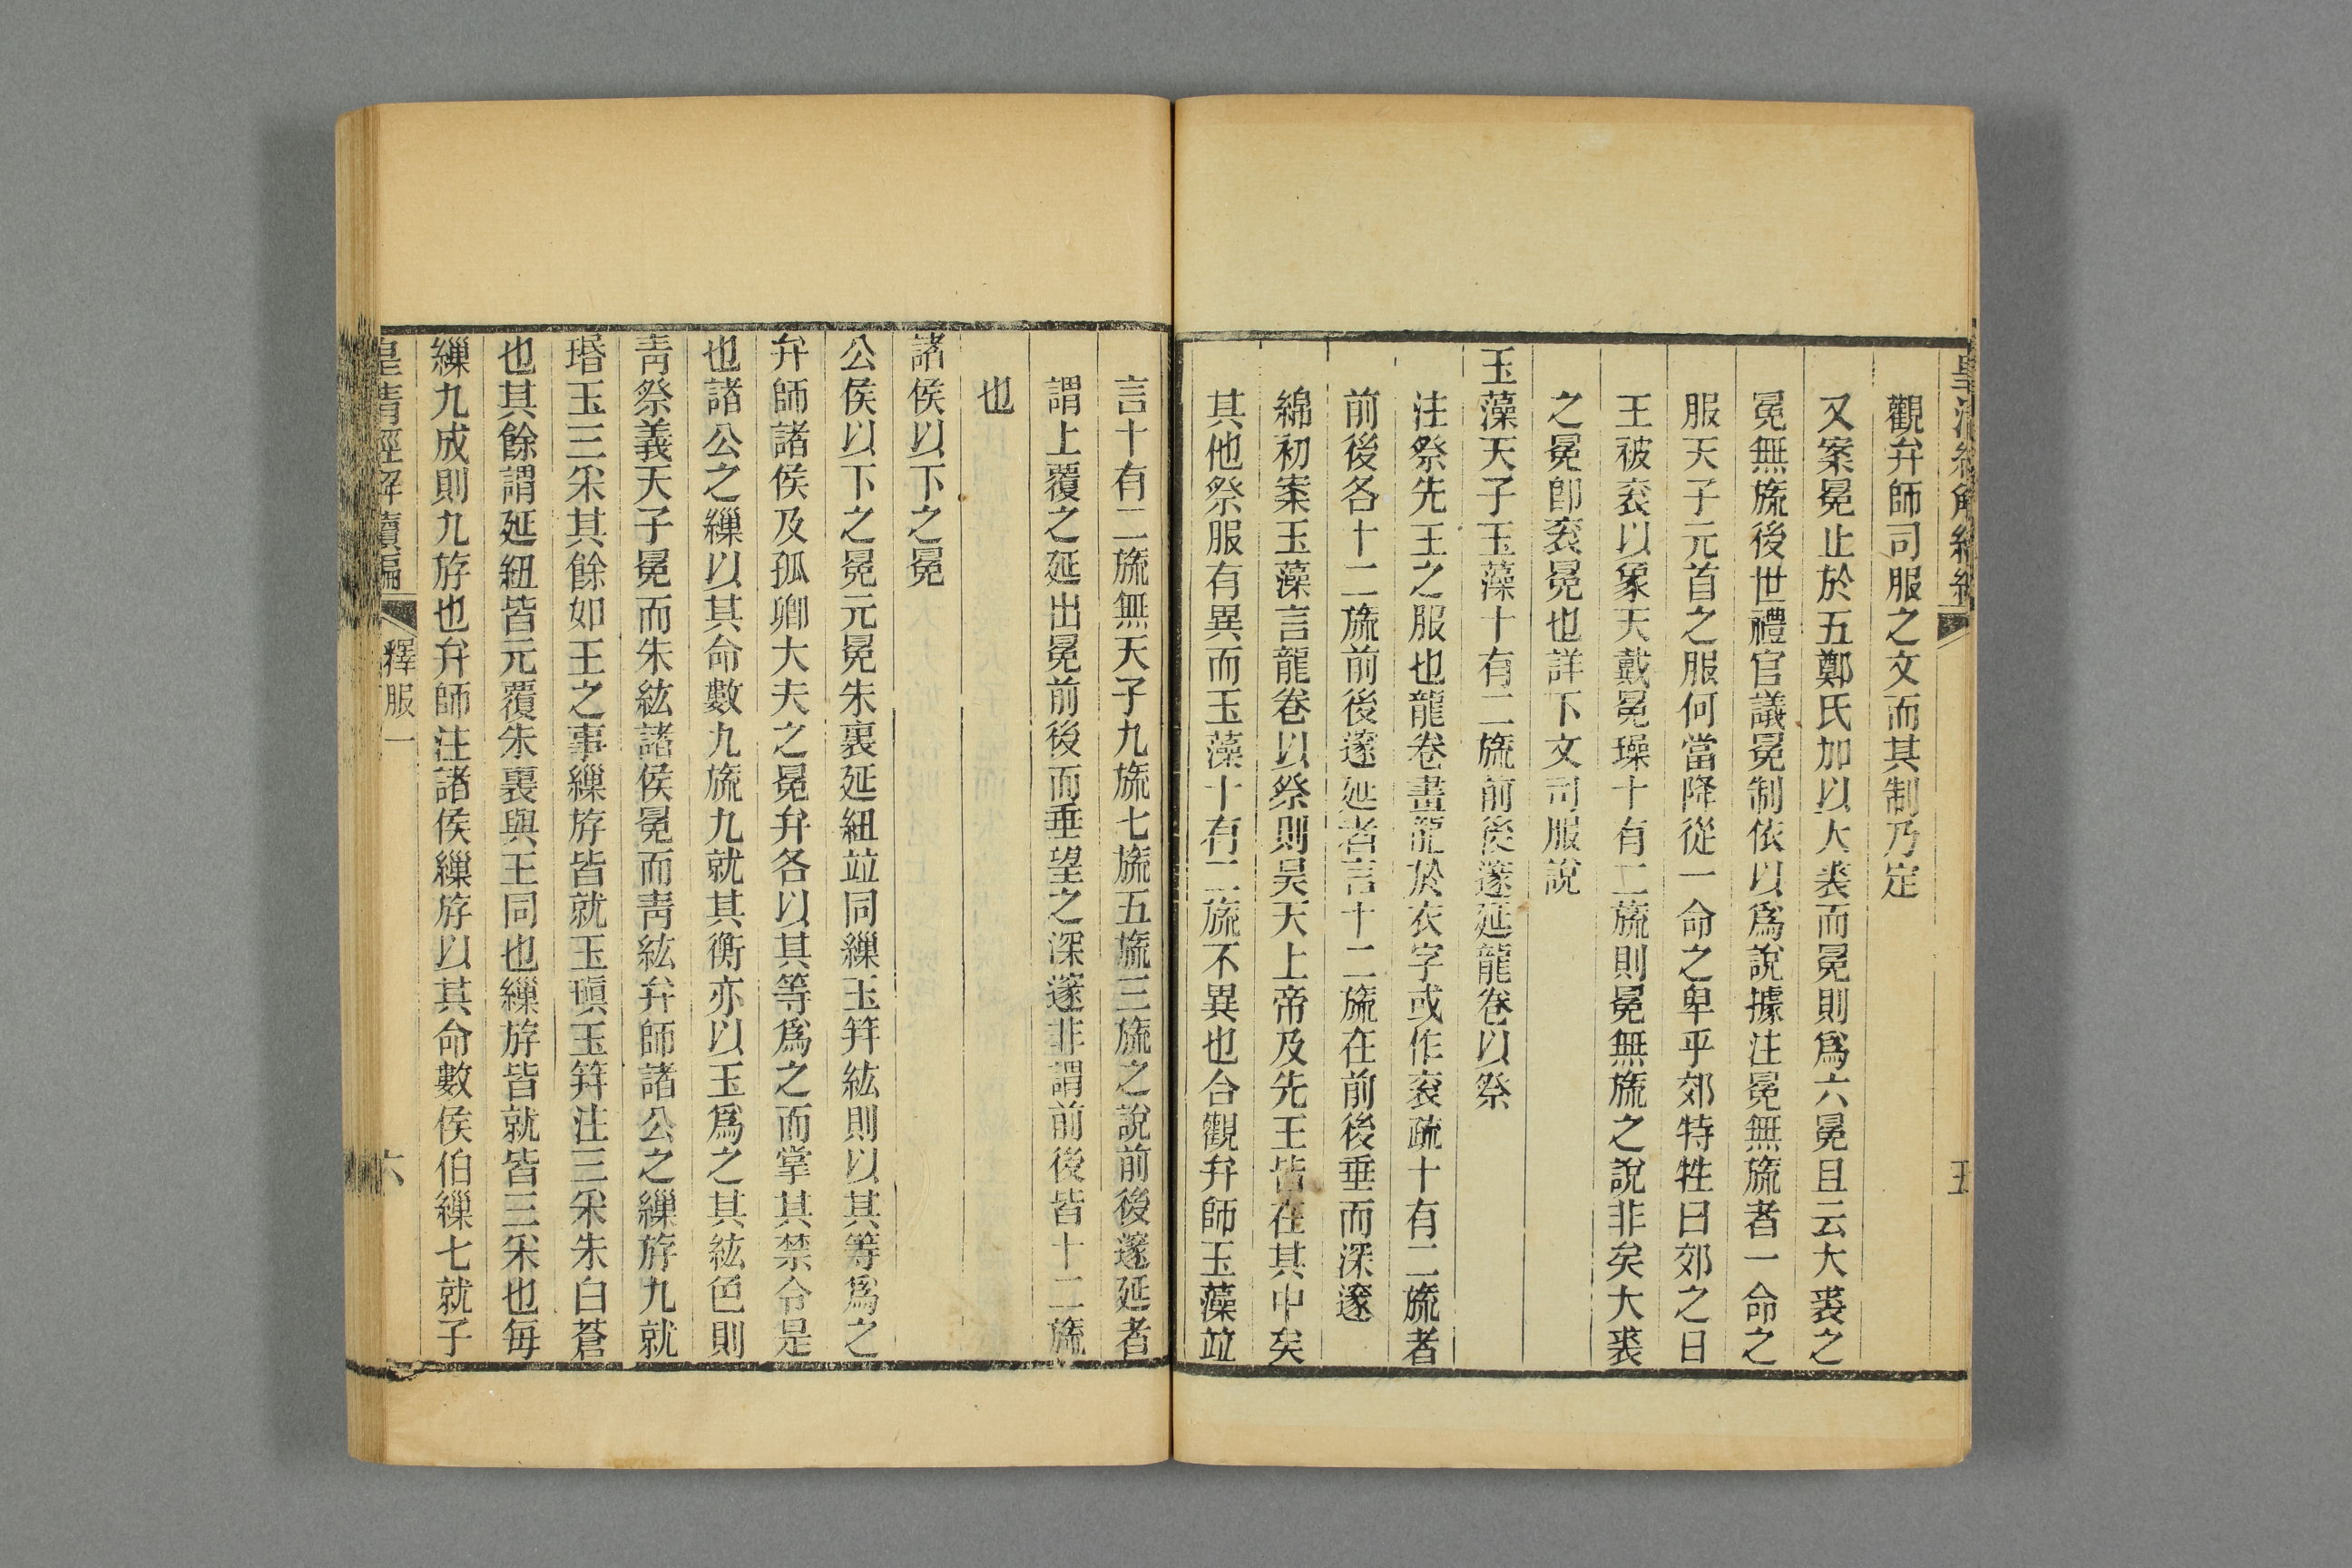 觀弁師司服之文而其制乃定
又案冕止於五鄭氏加以大裘而冕則爲六冕且云大裘之
冕無旒後世禮官議冕制依以爲說據注冕無旒者一命之
服天子元首之服何當降從一命之卑乎郊特牲曰郊之日
王被袞以象天戴冕璪十有二旒則冕無旒之說非矣大裘
之冕卽袞冕也詳下文司服說
玉藻天子玉藻十有二旒前後邃延龍卷以祭
注祭先王之服也龍卷畫龍於衣字或作袞疏十有二旒者
前後各十二旒前後邃延者言十二旒在前後垂而深邃
綿初案玉藻言龍卷以祭則昊天上帝及先王皆在其中矣
其他祭服有異而玉藻十有二旒不異也合觀弁師玉藻竝
言十有二旒無天子九旒七旒五旒三旒之說前後邃延者
謂上覆之延出冕前後而垂望之深邃非謂前後皆十二旒
也
諸侯以下之冕
公侯以下之冕元冕朱裏延紐竝同繅玉笄紘則以其等爲之
弁師諸侯及孤卿大夫之冕弁各以其等爲之而掌其禁令是
也諸公之繅以其命數九旒九就其衡亦以玉爲之其紘色則
靑祭義天子冕而朱紘諸侯冕而靑紘弁師諸公之繅斿九就
瑉玉三采其餘如王之事繅斿皆就玉瑱玉笄注三采朱白蒼
也其餘謂延紐皆元覆朱裏與王同也繅斿皆就皆三采也每
繅九成則九斿也弁師注諸侯繅斿以其命數侯伯繅七就子
皇清經解續編 釋服一 六